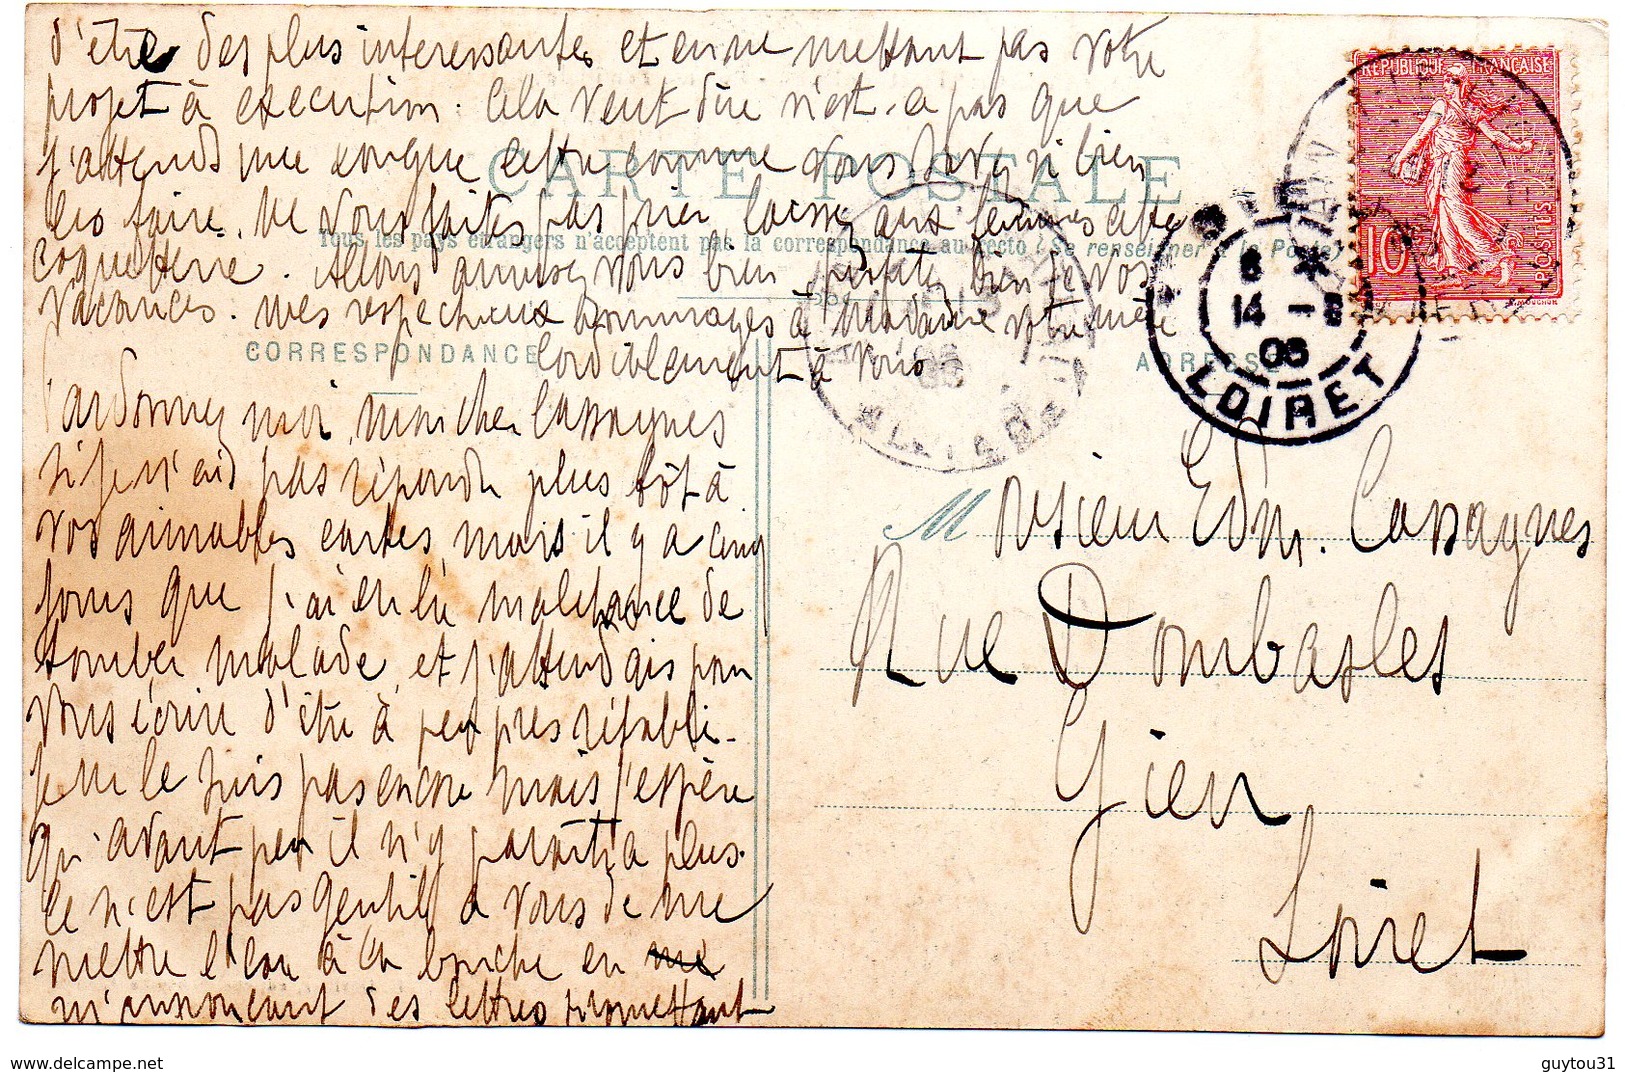 d'être des plus interessantes et en ne mettant pas votre
projet à execution. Cela veut dire n'est-ce pas que
j'attends une longue lettre comme vous savez si bien
les faire. Ne vous faites pas prier laissez aux femmes cette
coquetterie. Allons amusez vous bien profitez bien de vos
vacances. Mes respectueux hommages à Madame votre mère
Cordialement à vous
CARTE POSTALE
Tous les pays étrangers n'acceptent pas la correspondance au recto (Se renseigner à la Poste)
CORRESPONDANCE
ADRESSE
Pardonnez moi, mon cher Cassagnes
si je n'ai pas répondu plus tôt à
vos aimables cartes mais il y a cinq
jours que j'ai eu la malchance de
tomber malade, et j'attendais pour
vous écrire d'être à peu près rétabli.
Je ne le suis pas encore mais j'espère
qu'avant peu il n'y paraîtra plus.
Ce n'est pas gentil à vous de me
mettre l'eau à la bouche en me
m'annonçant des lettres promettant
RÉPUBLIQUE FRANÇAISE
10
POSTES
GIEN
6 *
14 - 8
06
LOIRET
Monsieur Edm. Cassagnes
Rue Dombasles
Gien
Loiret
www.delcampe.net
guytou31